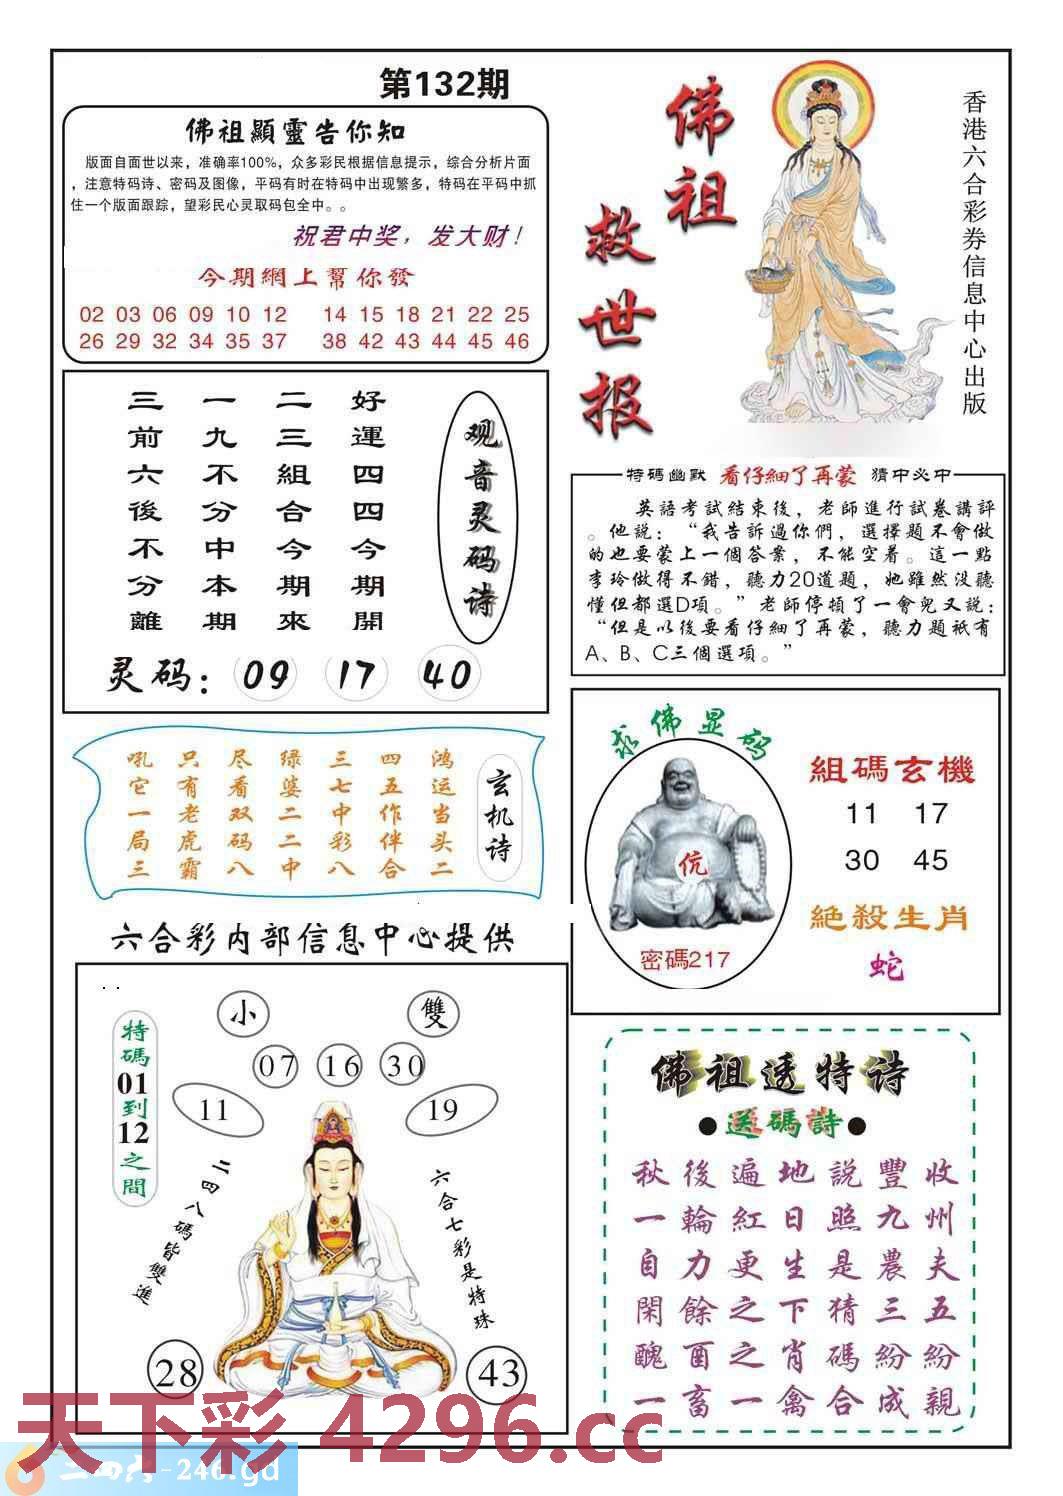 第132期
佛祖顯靈告你知
版面自面世以来，准确率100%，众多彩民根据信息提示，综合分析片面
，注意特码诗、密码及图像，平码有时在特码中出现繁多，特码在平码中抓
住一个版面跟踪，望彩民心灵取码包全中。。
祝君中奖，发大财！
今期網上幫你發
02 03 06 09 10 12 14 15 18 21 22 25
26 29 32 34 35 37 38 42 43 44 45 46
佛祖
救世报
香港六合彩券信息中心出版
观音灵码诗
好運四四今期開
二三組合今期來
一九不分中本期
三前六後不分離
灵码：09 17 40
特碼幽默 看仔細了再蒙 猜中必中
英語考試結束後，老師進行試卷講評
。他説：“我告訴過你們，選擇題不會做
的也要蒙上一個答案，不能空着。這一點
李玲做得不錯，聽力20道題，她雖然没聽
懂但都選D項。”老師停頓了一會兒又説：
“但是以後要看仔細了再蒙，聽力題衹有
A、B、C三個選項。”
玄机诗
鸿运当头二
四五作伴合
三七中彩八
绿婆二二中
尽看双码八
只有老虎霸
吼它一局三
求佛显码
伉
密碼217
組碼玄機
11 17
30 45
絶殺生肖
蛇
六合彩内部信息中心提供
特碼01到12之間
小 雙
07 16 30
11 19
二四八碼皆雙進
六合七彩是特珠
28 43
佛祖透特诗
●送碼詩●
秋後遍地説豐收
一輪紅日照九州
自力更生是農夫
閑餘之下猜三五
醜酉之肖碼紛紛
一畜一禽合成親
天下彩 4296.cc
二四六-246.gd